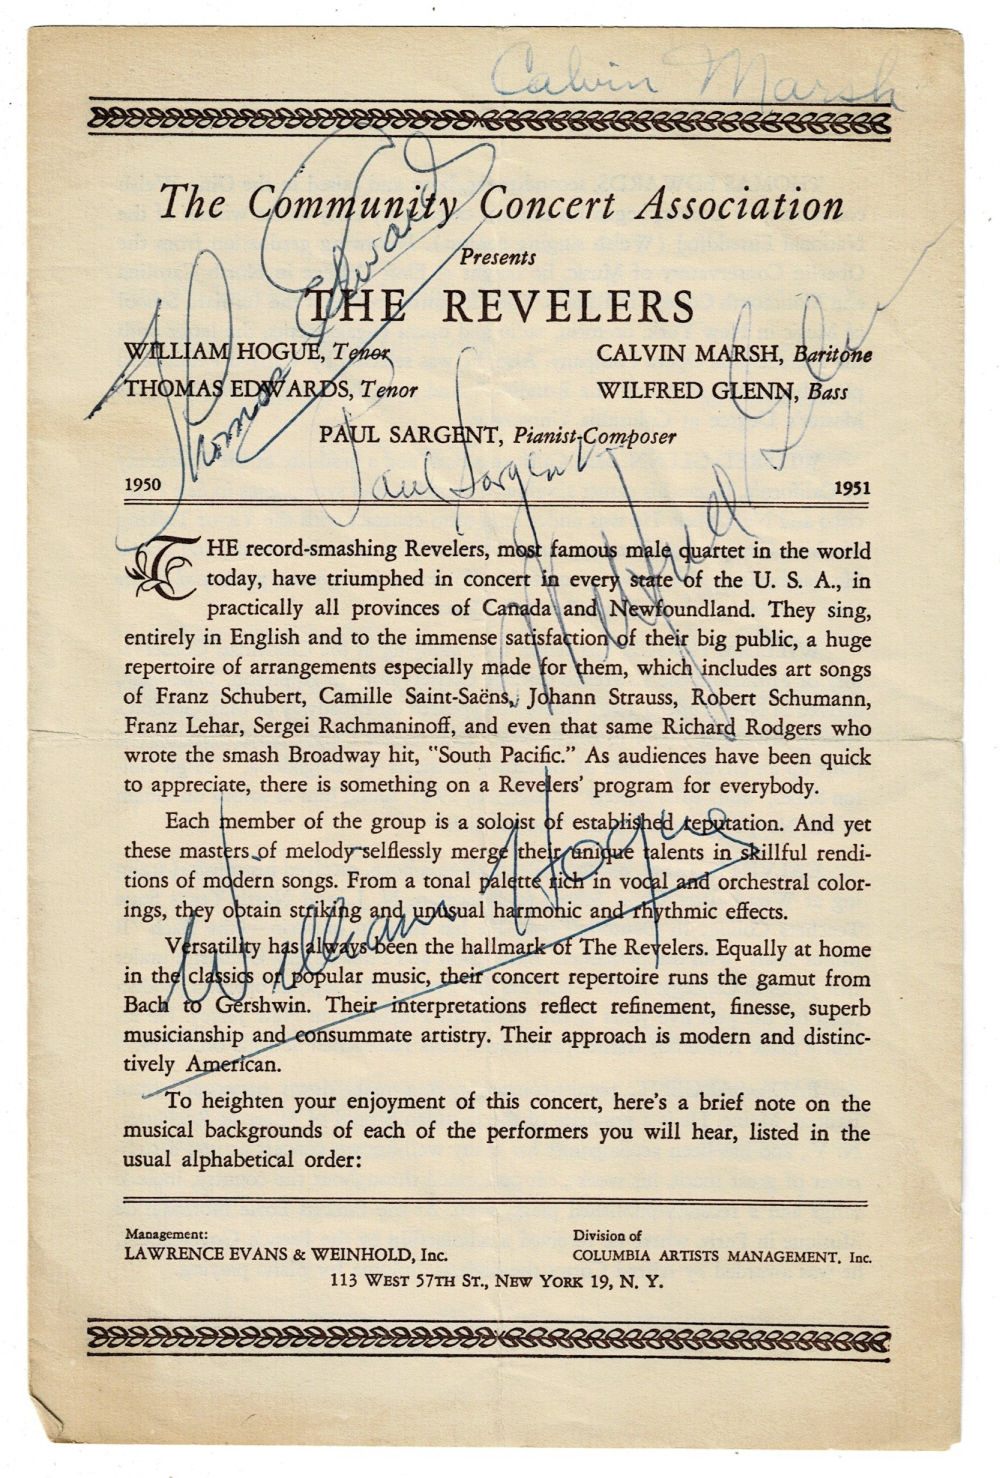 Calvin Marsh
The Community Concert Association
Presents
THE REVELERS
WILLIAM HOGUE, Tenor
CALVIN MARSH, Baritone
THOMAS EDWARDS, Tenor
WILFRED GLENN, Bass
PAUL SARGENT, Pianist-Composer
Thomas Edwards
Paul Sargent
Wilfred Glenn
1950 1951
THE record-smashing Revelers, most famous male quartet in the world
today, have triumphed in concert in every state of the U. S. A., in
practically all provinces of Canada and Newfoundland. They sing,
entirely in English and to the immense satisfaction of their big public, a huge
repertoire of arrangements especially made for them, which includes art songs
of Franz Schubert, Camille Saint-Saëns, Johann Strauss, Robert Schumann,
Franz Lehar, Sergei Rachmaninoff, and even that same Richard Rodgers who
wrote the smash Broadway hit, "South Pacific." As audiences have been quick
to appreciate, there is something on a Revelers' program for everybody.
Each member of the group is a soloist of established reputation. And yet
these masters of melody selflessly merge their unique talents in skillful rendi-
tions of modern songs. From a tonal palette rich in vocal and orchestral color-
ings, they obtain striking and unusual harmonic and rhythmic effects.
William Hogue
Versatility has always been the hallmark of The Revelers. Equally at home
in the classics or popular music, their concert repertoire runs the gamut from
Bach to Gershwin. Their interpretations reflect refinement, finesse, superb
musicianship and consummate artistry. Their approach is modern and distinc-
tively American.
To heighten your enjoyment of this concert, here's a brief note on the
musical backgrounds of each of the performers you will hear, listed in the
usual alphabetical order:
Management:
LAWRENCE EVANS & WEINHOLD, Inc.
Division of
COLUMBIA ARTISTS MANAGEMENT, Inc.
113 WEST 57TH ST., NEW YORK 19, N. Y.